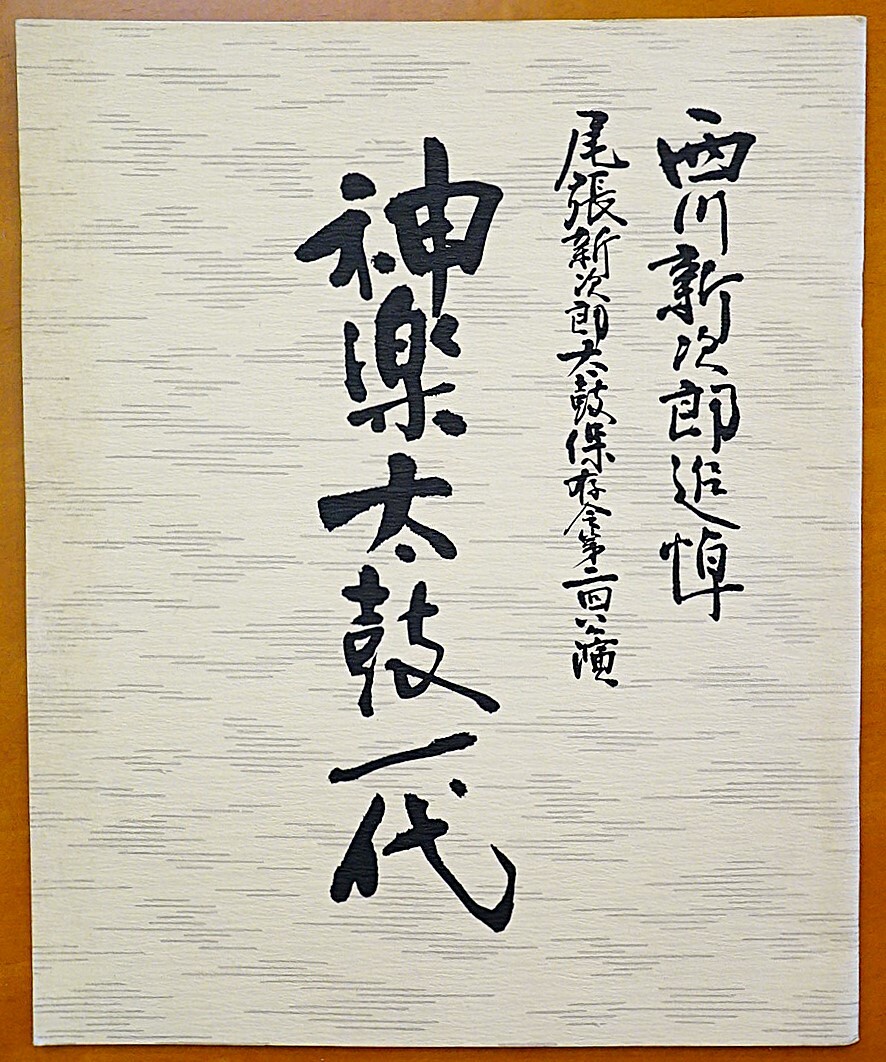 西川新次郎追悼
尾張新次郎太鼓保存会第二回公演
神楽太鼓一代